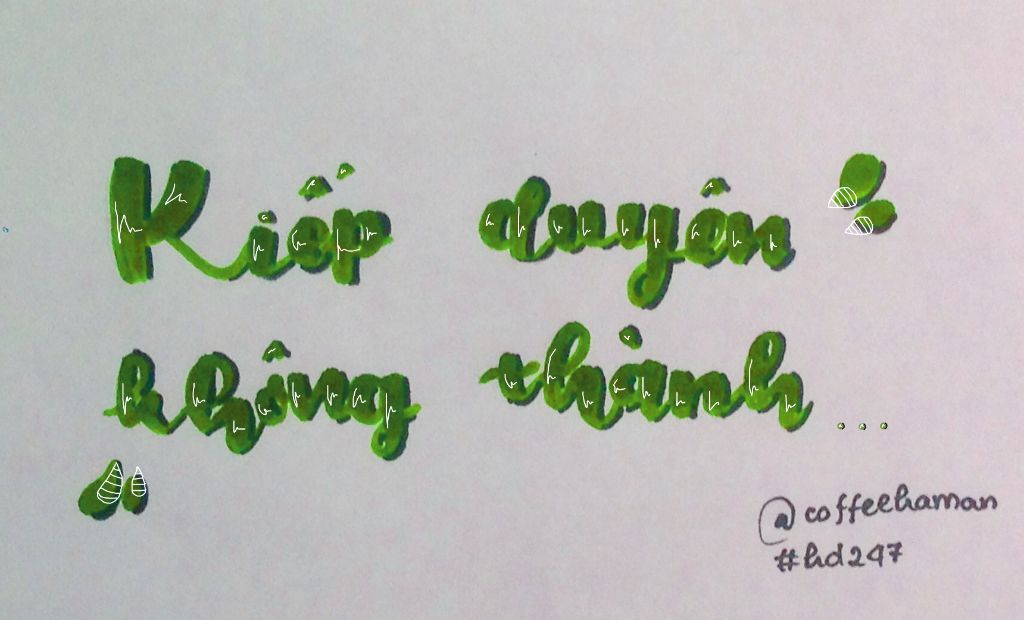 Kiếp duyên
không thành...
@coffeehaman
#hd247